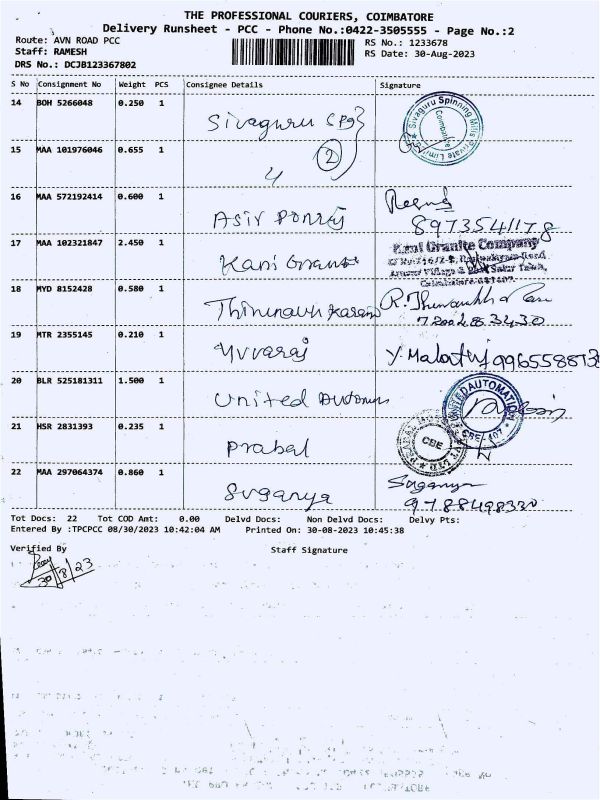 THE PROFESSIONAL COURIERS, COIMBATORE
Delivery Runsheet - PCC - Phone No.:0422-3505555 - Page No.:2
Route: AVN ROAD PCC
RS No.: 1233678
Staff: RAMESH
RS Date: 30-Aug-2023
DRS No.: DCJB123367802
S No Consignment No Weight PCS Consignee Details Signature
14 BOH 5266048 0.250 1 Sivaguru (P9)
Sivaguru Spinning Mills Private Limited Coimbatore
15 MAA 101976046 0.655 1 4 2
16 MAA 572192414 0.600 1 Asir Ponraj 8973541178
17 MAA 102321847 2.450 1 Kani Granite
Kani Granite Company
18 MYD 8152428 0.580 1 Thirunavukarasu
7200483430
19 MTR 2355145 0.210 1 Yuvaraj Y. Malathy 9965588738
20 BLR 525181311 1.500 1 United Automa
UNITED AUTOMATION CBE-407
21 HSR 2831393 0.235 1 Prabal
CBE
22 MAA 297064374 0.860 1 Suganya Suganya
9788498330
Tot Docs: 22 Tot COD Amt: 0.00 Delvd Docs: Non Delvd Docs: Delvy Pts:
Entered By :TPCPCC 08/30/2023 10:42:04 AM Printed On: 30-08-2023 10:45:38
Verified By Staff Signature
30/8/23